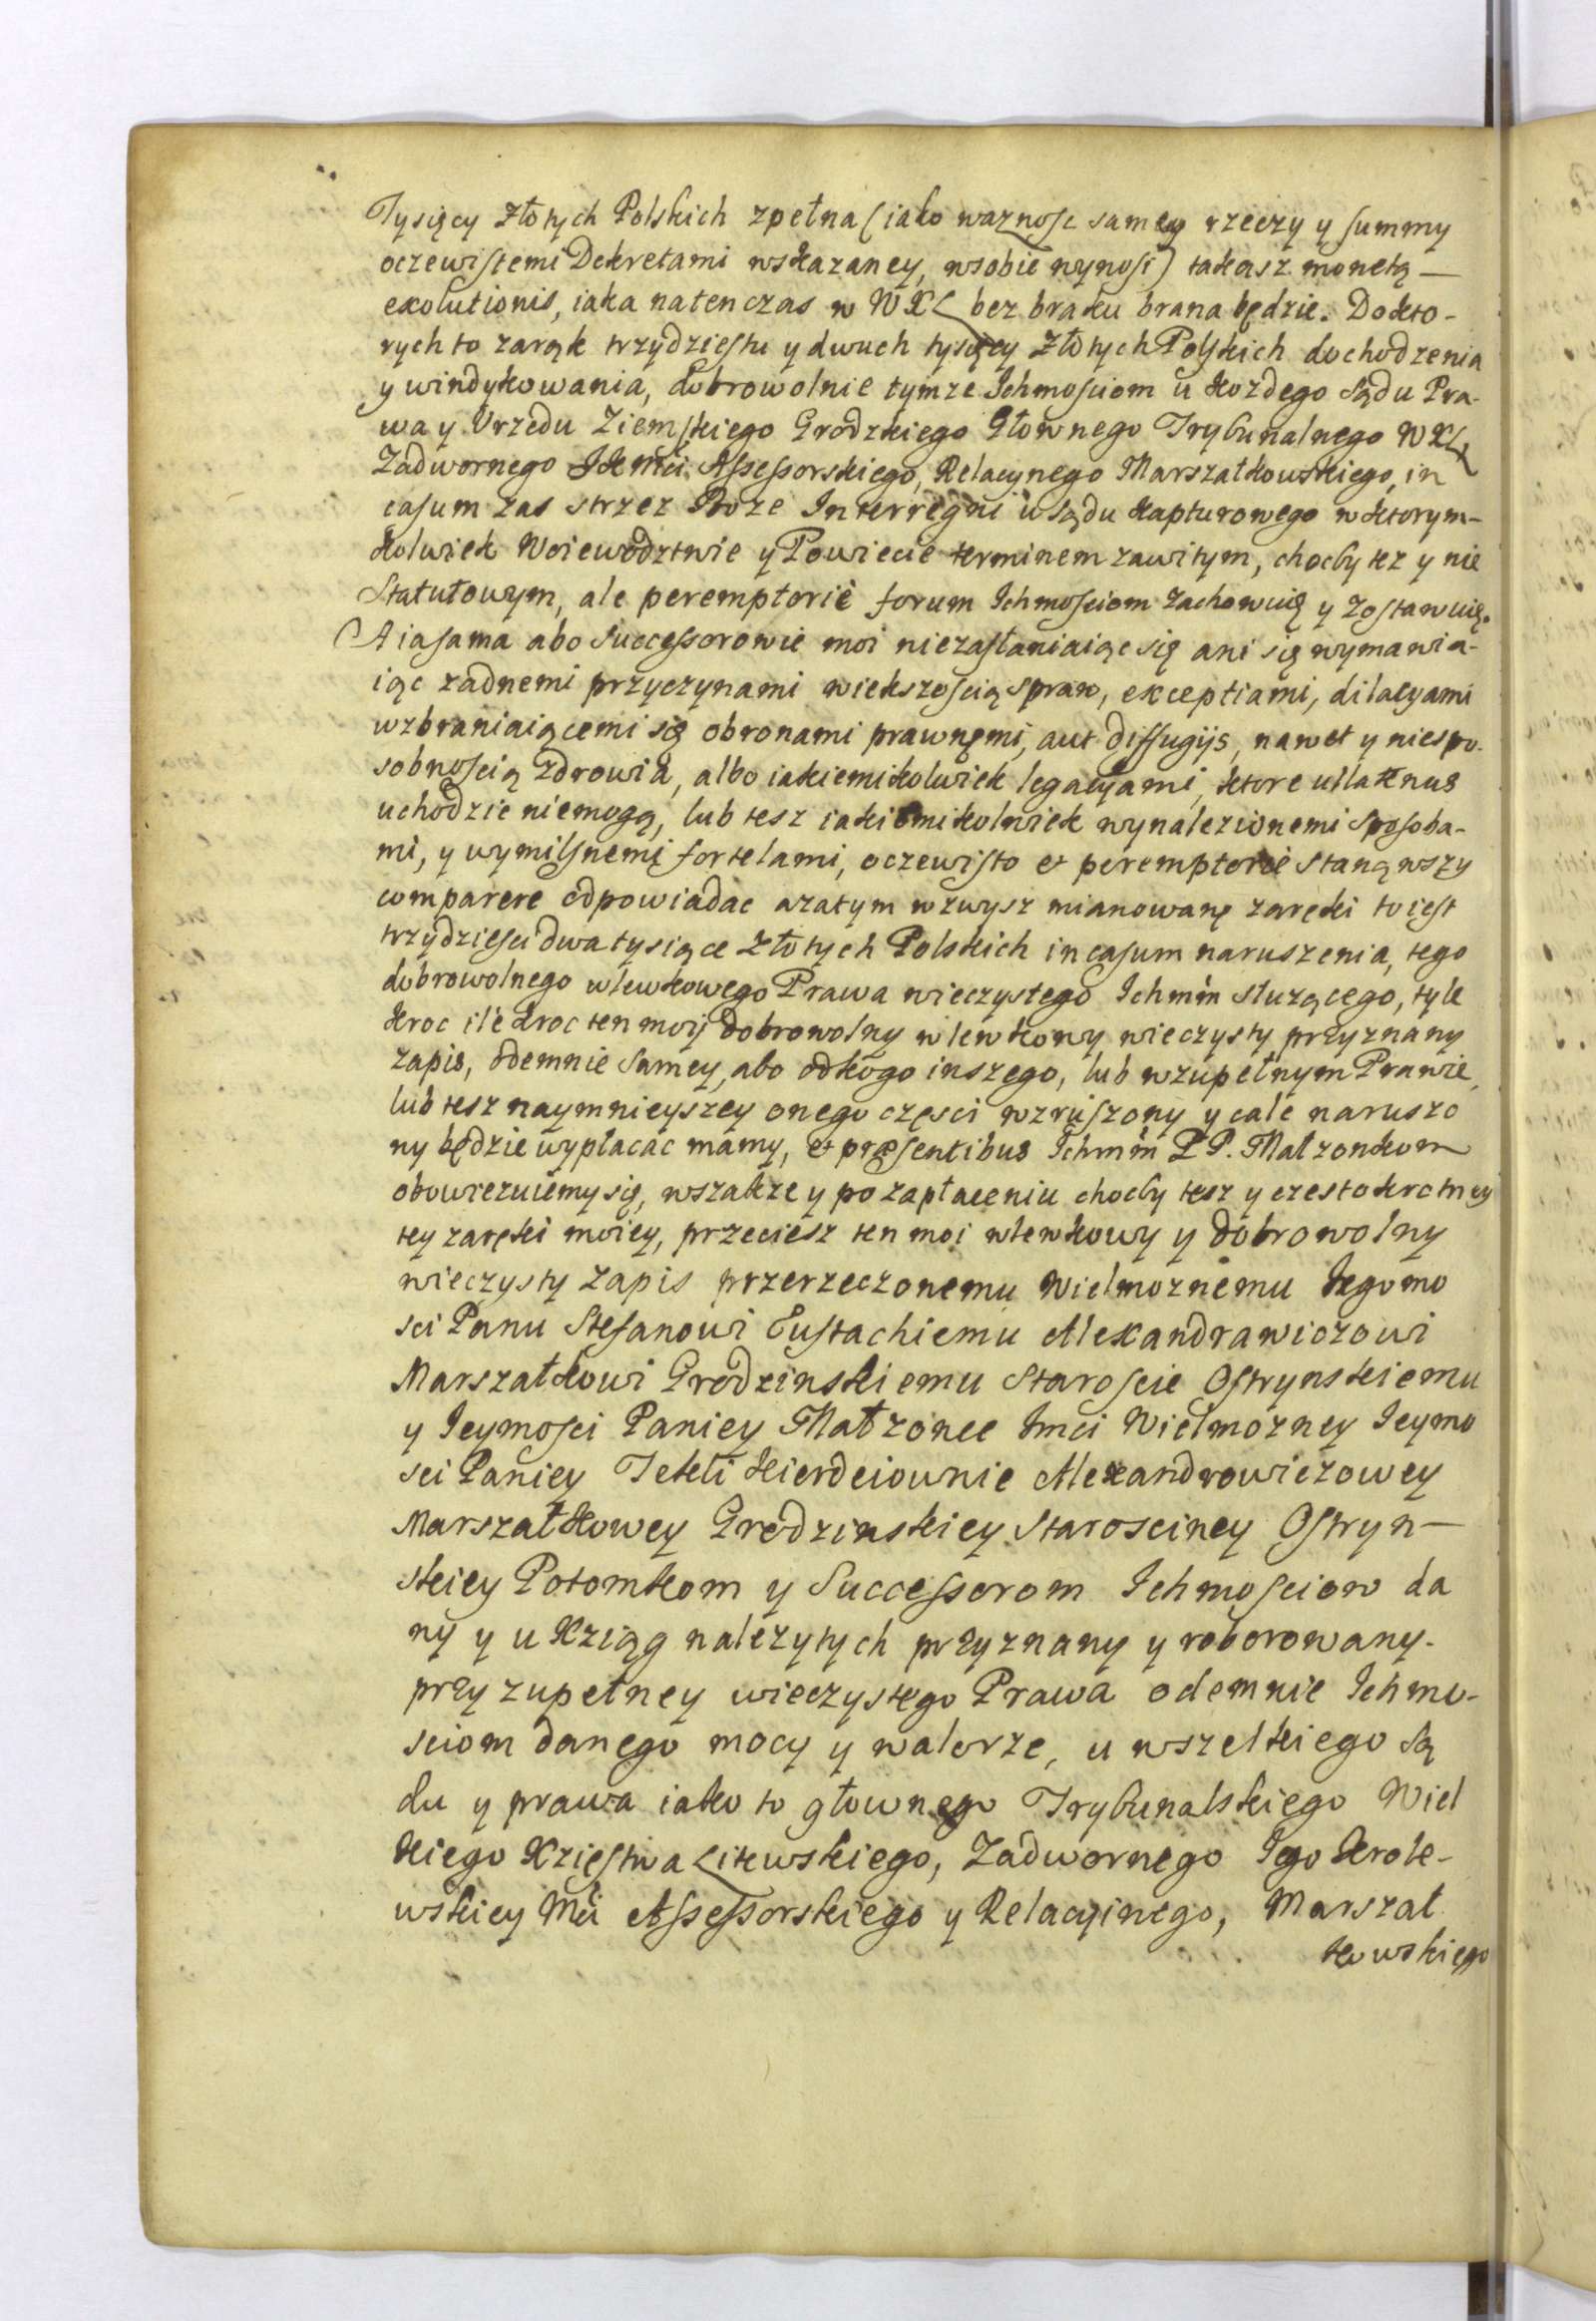 Tysięcy Złotych Polskich zpełna (iako waznosc samey rzeczy y summy
oczewistemi Dekretami wskazaney, wsobie wynosi) takąsz monetą —
exolutionis, iaka natenczas w WXL bez braku brana będzie. Dokto-
rych to zarąk trzydziestu y dwuch tysięcy Złotych Polskich dochodzenia
y windykowania, dobrowolnie tymze Ichmosciom u kozdego Sądu Pra-
wa y Vrzedu Ziemskiego Grodzkiego Głownego Trybunalnego WXL,
Zadwornego JKMci Assessorskiego, Relacynego Marszałkowskiego, in
casum zas strzez Boze Interregni u Sądu kapturowego w ktorym-
kolwiek Woiewodztwie y Powiecie terminem zawitym, chocby tez y nie
Statutowym, ale peremptoriè forum Ichmosciom zachowuię y zostawuię.
A ia sama abo Successorowie moi niezasłaniaiąc się ani się wymawia-
iąc zadnemi przyczynami wiekszoscią spraw, exceptiami, dilacyami
wzbraniaiącemi się obronami prawnęmi, aut diffugijs, nawet y niespo-
sobnoscią zdrowia, albo iakiemikolwiek legacyami, ktore ullatenus
uchodzic niemogą, lub tesz iakiemikolwiek wynalezionemi sposoba-
mi, y wymilsnemi fortelami, oczewisto et peremptoriè stanąwszy
comparere odpowiadac azatym wzwysz mianowanę zaręki to iest
trzydziesci dwa tysiące Złotych Polskich in casum naruszenia, tego
dobrowolnego wlewkowego Prawa wieczystego Ichmm słuzącego, tyle
kroc ile kroc ten moij dobrowolny wlewkowy wieczysty przyznany
zapis, odemnie samey, abo odkogo inszego, lub wzupełnym Prawie,
lub tesz naymnieyszey onego częsci wzruszony y cale naruszo
ny będzie wypłacac mamy, et præsentibus Ichmm P P. Małzonkom
obowiezuiemy się, wszakze y po zapłaceniu chocby tesz y czestokrotney
tey zaręki moiey, przeciesz ten moi wlewkowy y dobrowolny
wieczysty zapis przerzeczonemu Wielmoznemu Jegomo
sci Panu Stefanowi Eustachiemu Alexandrawiczowi
Marszałkowi Grodzinskiemu Staroscie Ostrynskiemu
y Ieymosci Paniey Małzonce Imci Wielmozney Ieymo
sci Paniey Tekli Kierdeiownie Alexandrowiczowey
Marszałkowey Grodzinskiey Starosciney Ostryn —
skiey Potomkom y Successorom Ichmosciow da
ny y u Xziąg nalezytych przyznany y roborowany.
przy zupełney wieczystego Prawa odemnie Ichmo-
sciom danego mocy y walorze, u wszelkiego Są
du y prawa iako to głownego Trybunalskiego Wiel
kiego Xzięstwa Litewskiego, Zadwornego Iego Krole-
wskiey Mci Assessorskiego y Relacyinego, Marszał
kowskiego